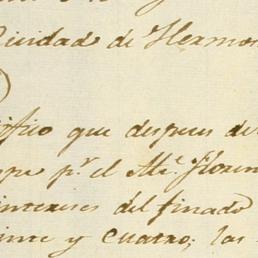 Ciudad de Hermos
tifico que despues de
pr. el Me. Floren
intereses del finado
inte y cuatro; las